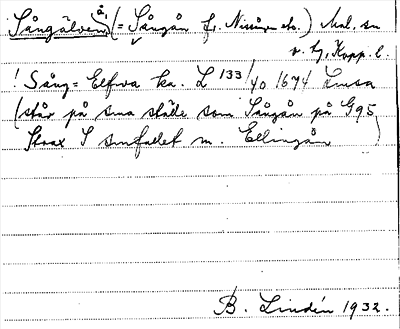 Sångälven å, (= Sångån fr. Nissån etc.) Mal. sn
v. tg, Kopp. l.
! Sång= Elfwa ka. L 133/40 1674 Limsa
(står på sma ställe som Sångån på G95
Strax S smfallet m. Ellingån )
B. Lindén 1932.